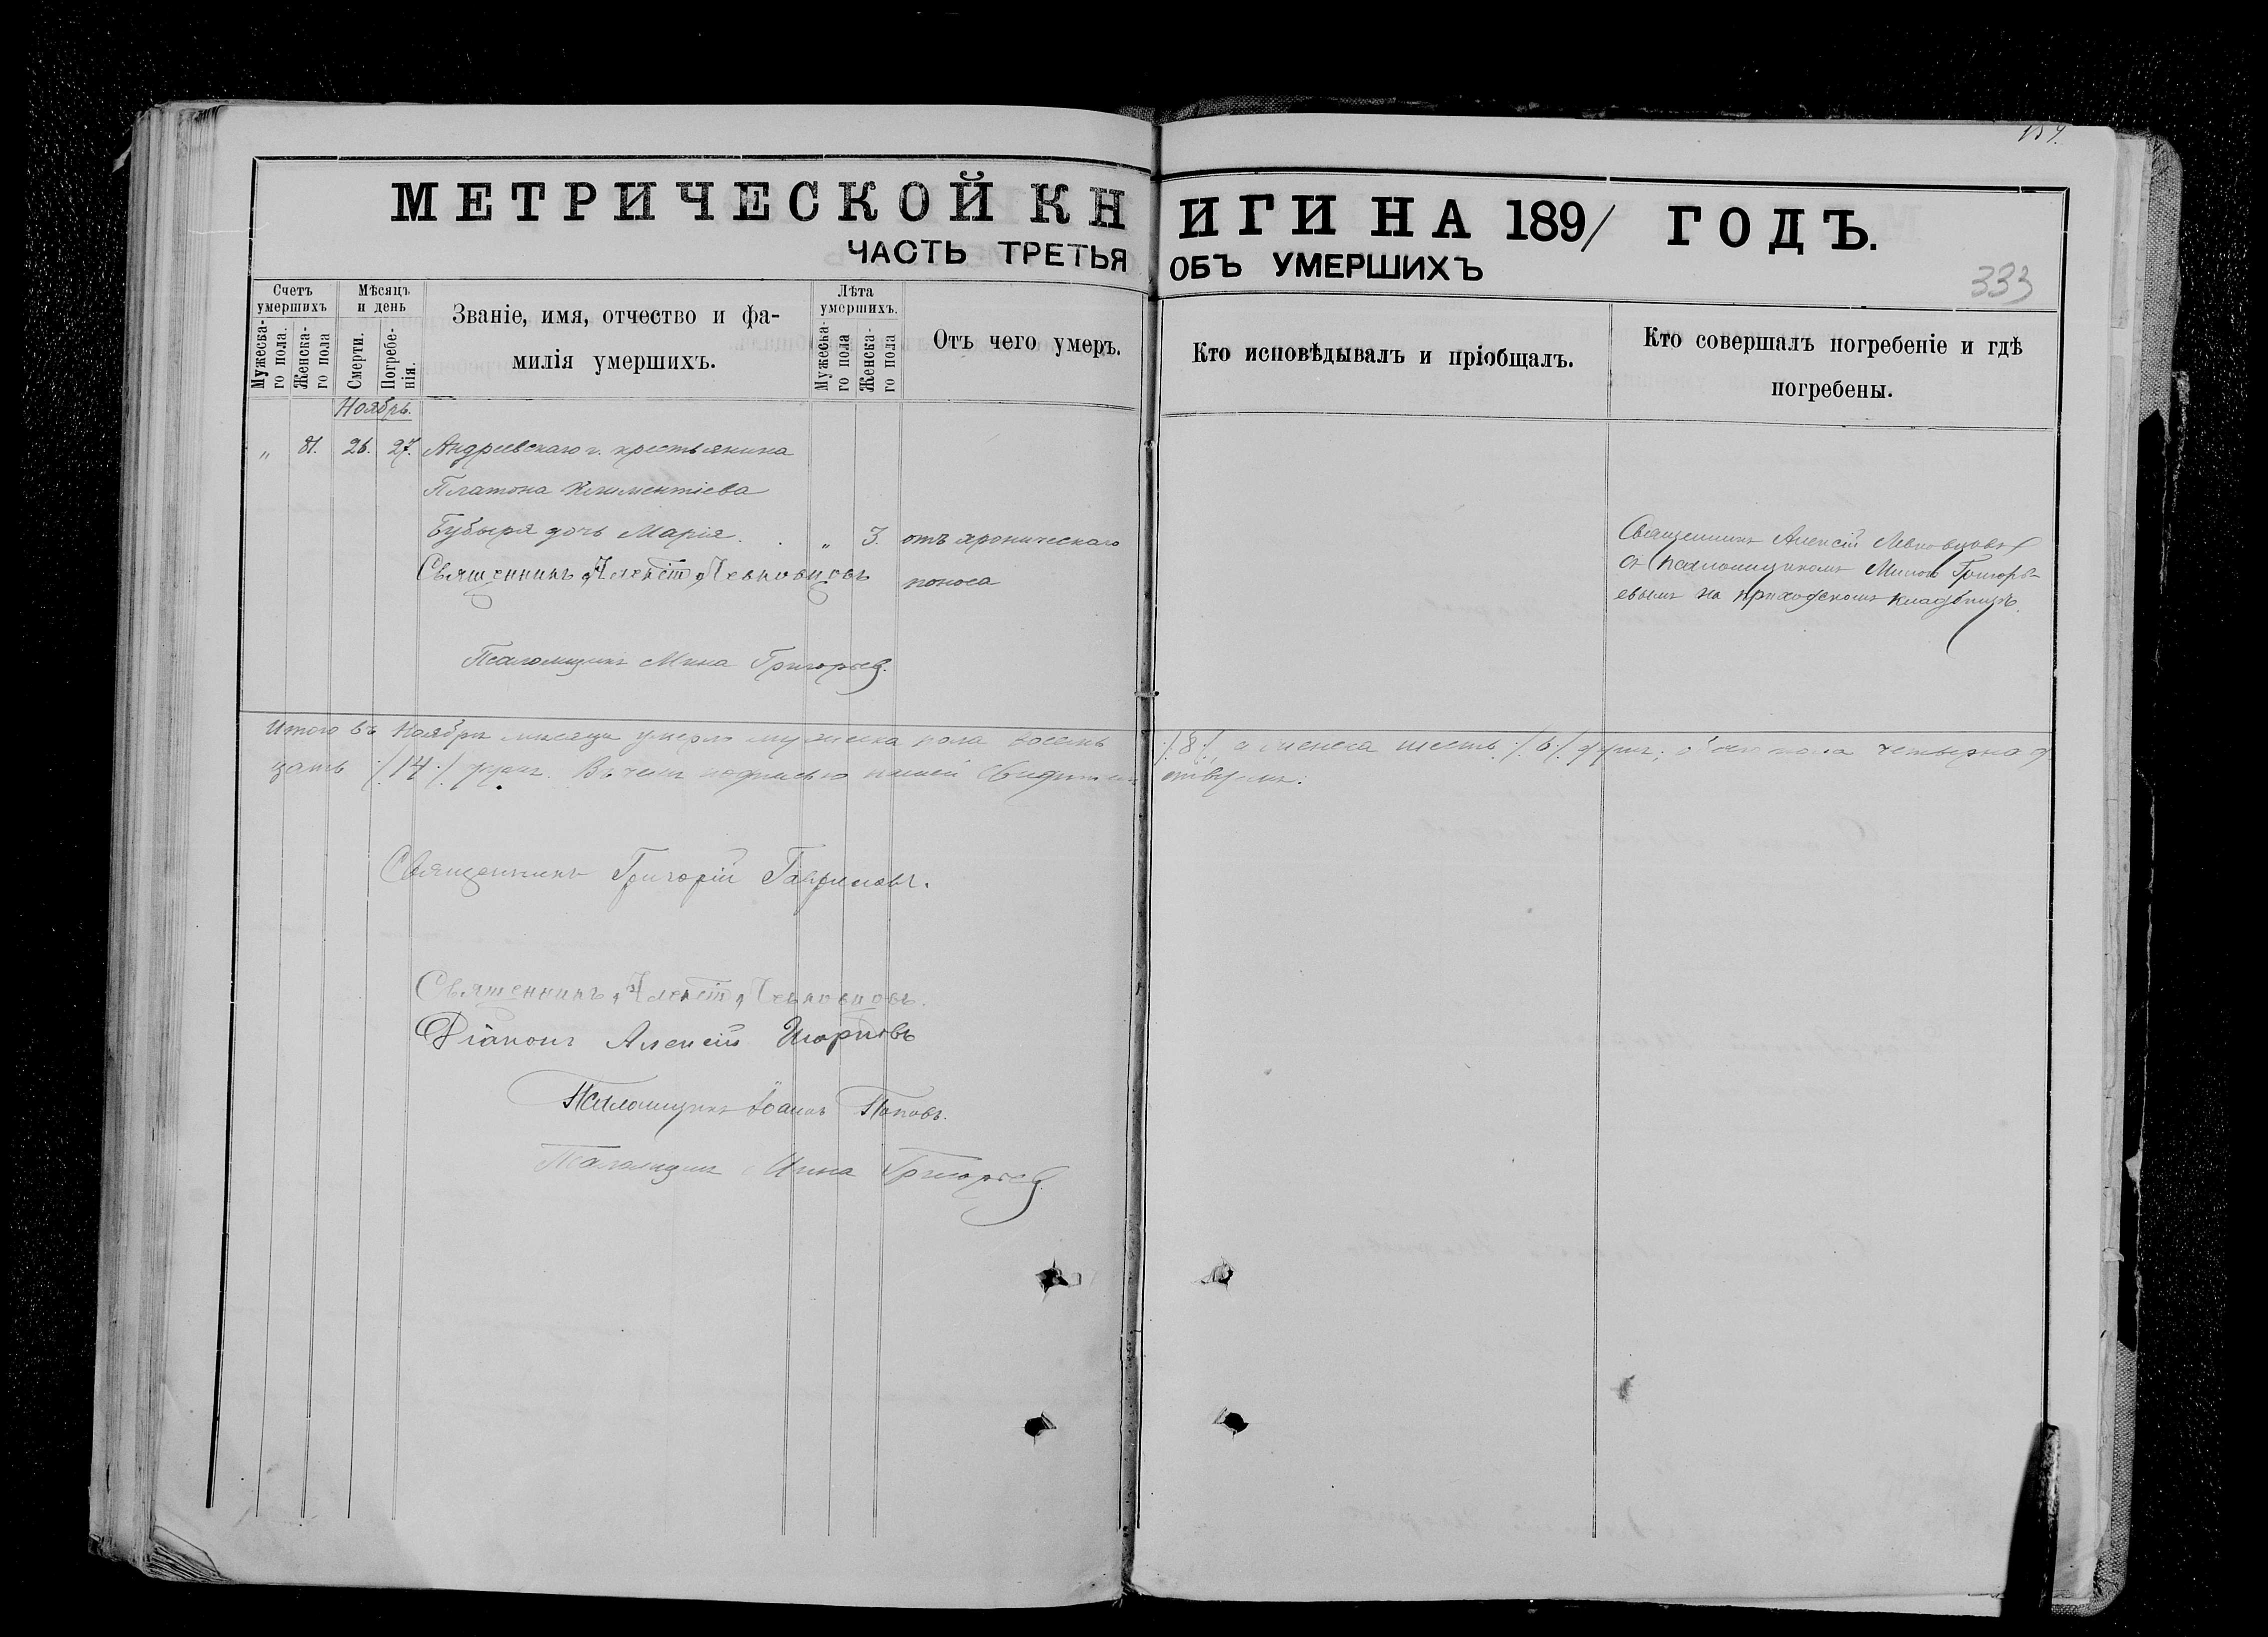 МЕТРИЧЕСКОЙ КНИГИ НА 1891 ГОДЪ.
ЧАСТЬ ТРЕТЬЯ ОБЪ УМЕРШИХЪ
333
Счетъ умершихъ
Мужеска-го пола.
Женска-го пола
Мѣсяцъ и день
Смерти.
Погребе-нія.
Званіе, имя, отчество и фа-
милія умершихъ.
Лѣта умершихъ.
Мужеска-го пола
Женска-го пола
Отъ чего умеръ.
Кто исповѣдывалъ и пріобщалъ.
Кто совершалъ погребеніе и гдѣ
погребены.
Ноябрь.
„ 81. 26. 27. Андреевскаго г. крестьянина
Платона Климентіева
Бубыря дочь Марія. . „ 3. отъ хроническаго
поноса
Священникъ Алексій Левковцовъ
съ псаломщикомъ Миною Григорь-
евымъ на приходскомъ кладбищѣ.
Священникъ Алексій Левковцовъ
Псаломщикъ Мина Григорьев.
Итого въ Ноябрѣ мѣсяцѣ умерло мужеска пола восемь /8/, а женска шесть /6/ душъ; обоего пола четырнад
цать /14/ душъ. Въ чемъ подписью нашей свидѣтельствуемъ.
Священникъ Григорій Гавриловъ.
Священникъ Алексій Левковцовъ.
Діаконъ Алексій
Псаломщикъ Іоаннъ Поповъ.
Псаломщикъ Мина Григорьев.